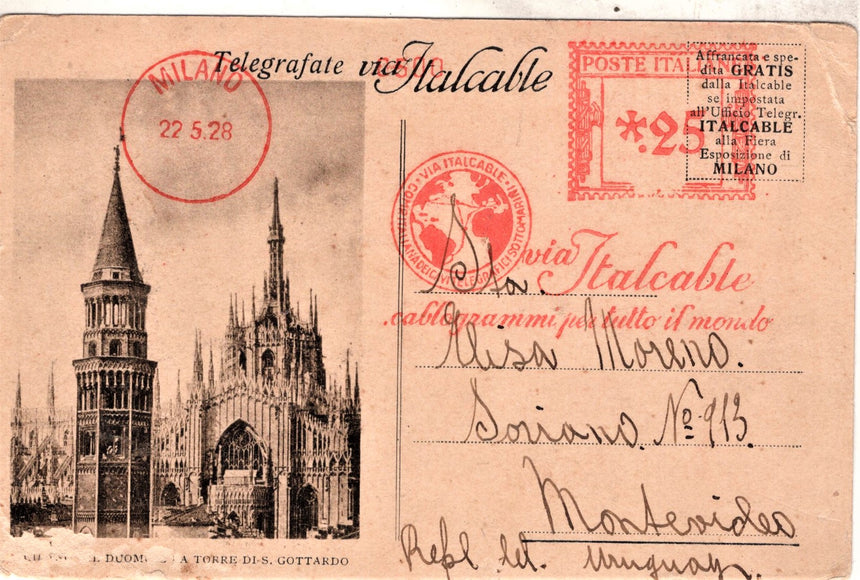 Telegrafate via Italcable
MILANO
22 5.28
POSTE ITALIANE
*.25
Affrancata e spe-
dita GRATIS
dalla Italcable
se impostata
all'Ufficio Telegr.
ITALCABLE
alla Fiera
Esposizione di
MILANO
VIA ITALCABLE
via Italcable
cablogrammi per tutto il mondo
Sta.
Elisa Moreno.
Soriano. Nº 913.
Montevideo
Uruguay
DUOMO LA TORRE DI S. GOTTARDO